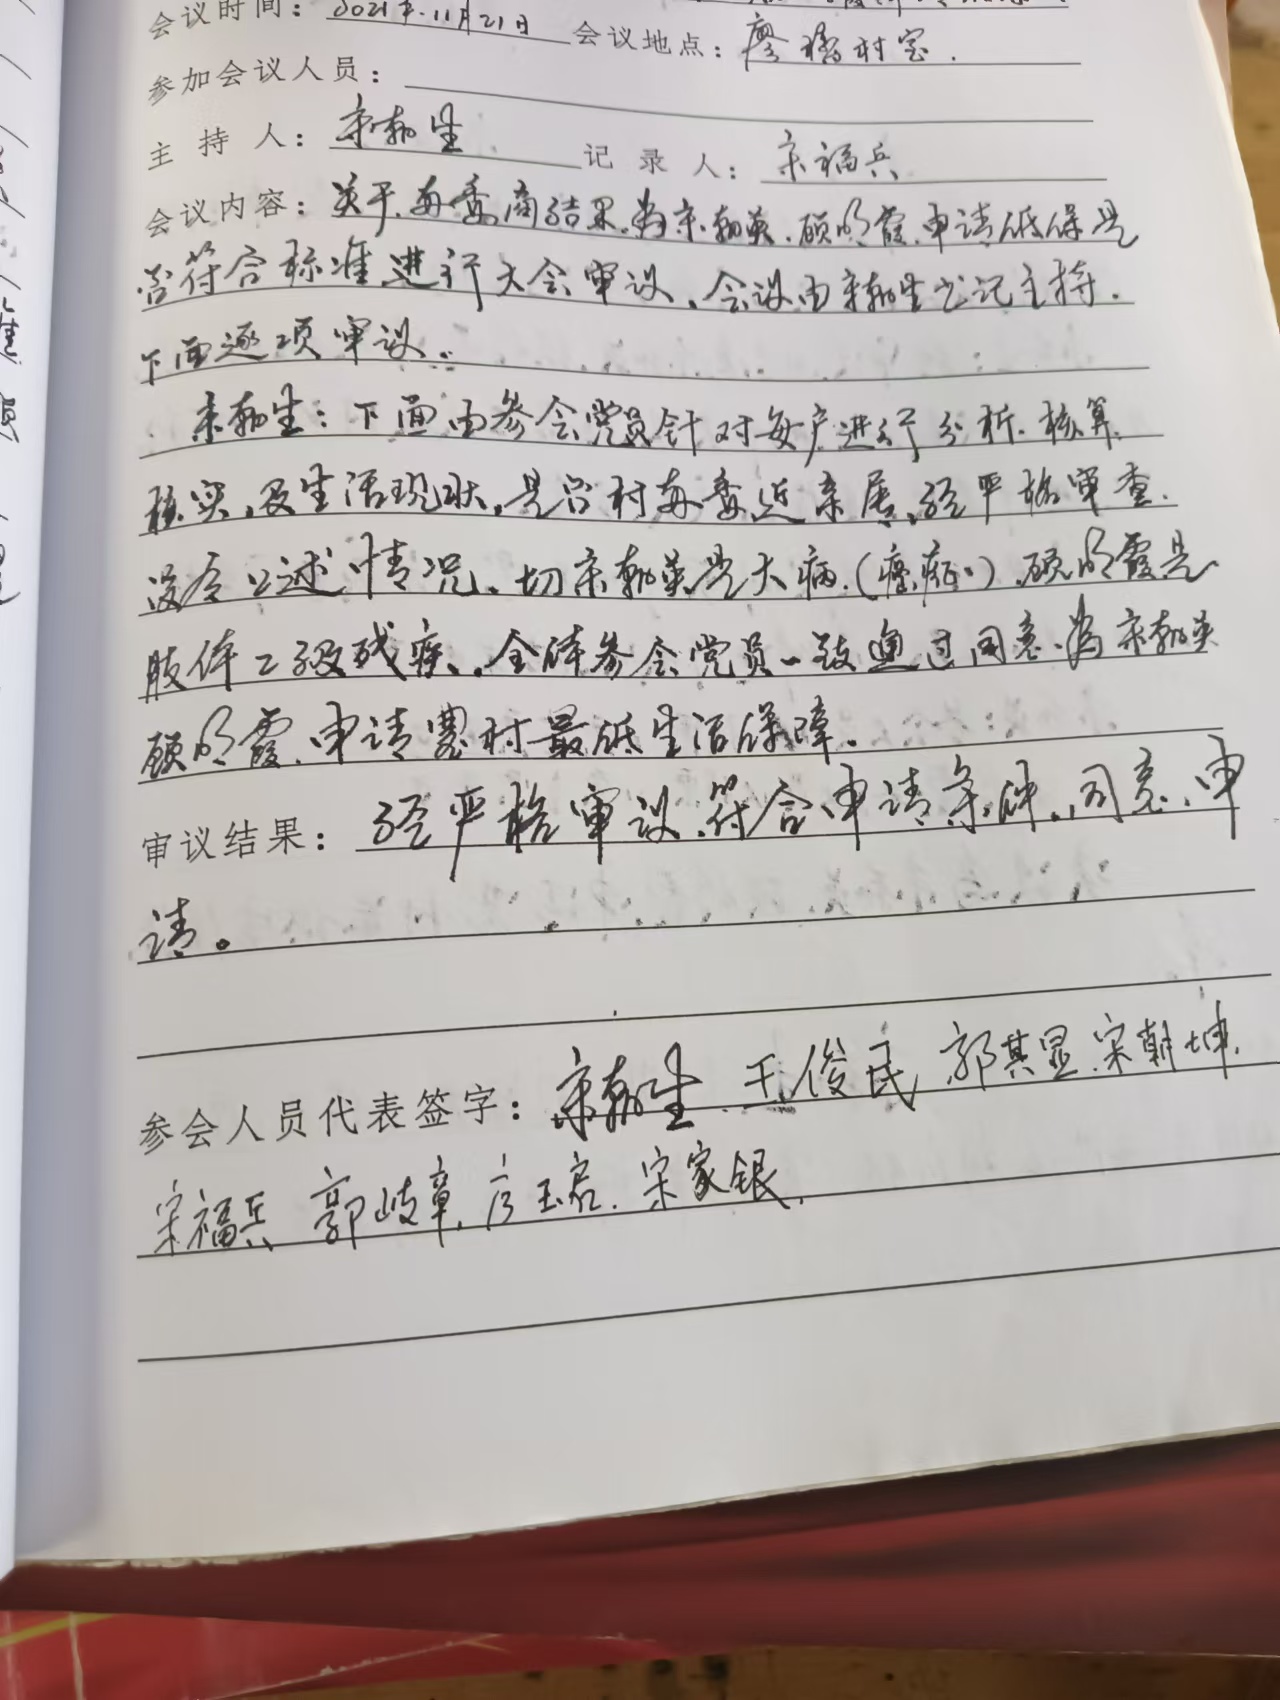 会议时间：2021年.11月21日 会议地点：廖桥村室.
参加会议人员：
主持人：宋朝生 记录人：宋福兵
会议内容：关于.每委商结果.为宋朝英.顾明霞.申请低保是
否符合标准进行大会审议、会议由宋朝生书记主持.
下面逐项审议.
宋朝生：下面由参会党员针对每户进行分析.核算.
核实.及生活现状.是否村每委近亲属.经严格审查.
没有上述情况.切宋朝英是大病.().顾明霞是
肢体二级残疾.全体参会党员一致通过同意.为宋朝英
顾明霞.申请农村最低生活保障.
审议结果：经严格审议.符合申请条件.同意.申
请。
参会人员代表签字：宋朝生 王俊民 郭其显.宋朝坤.
宋福兵 郭岐章.玉启.宋家银.